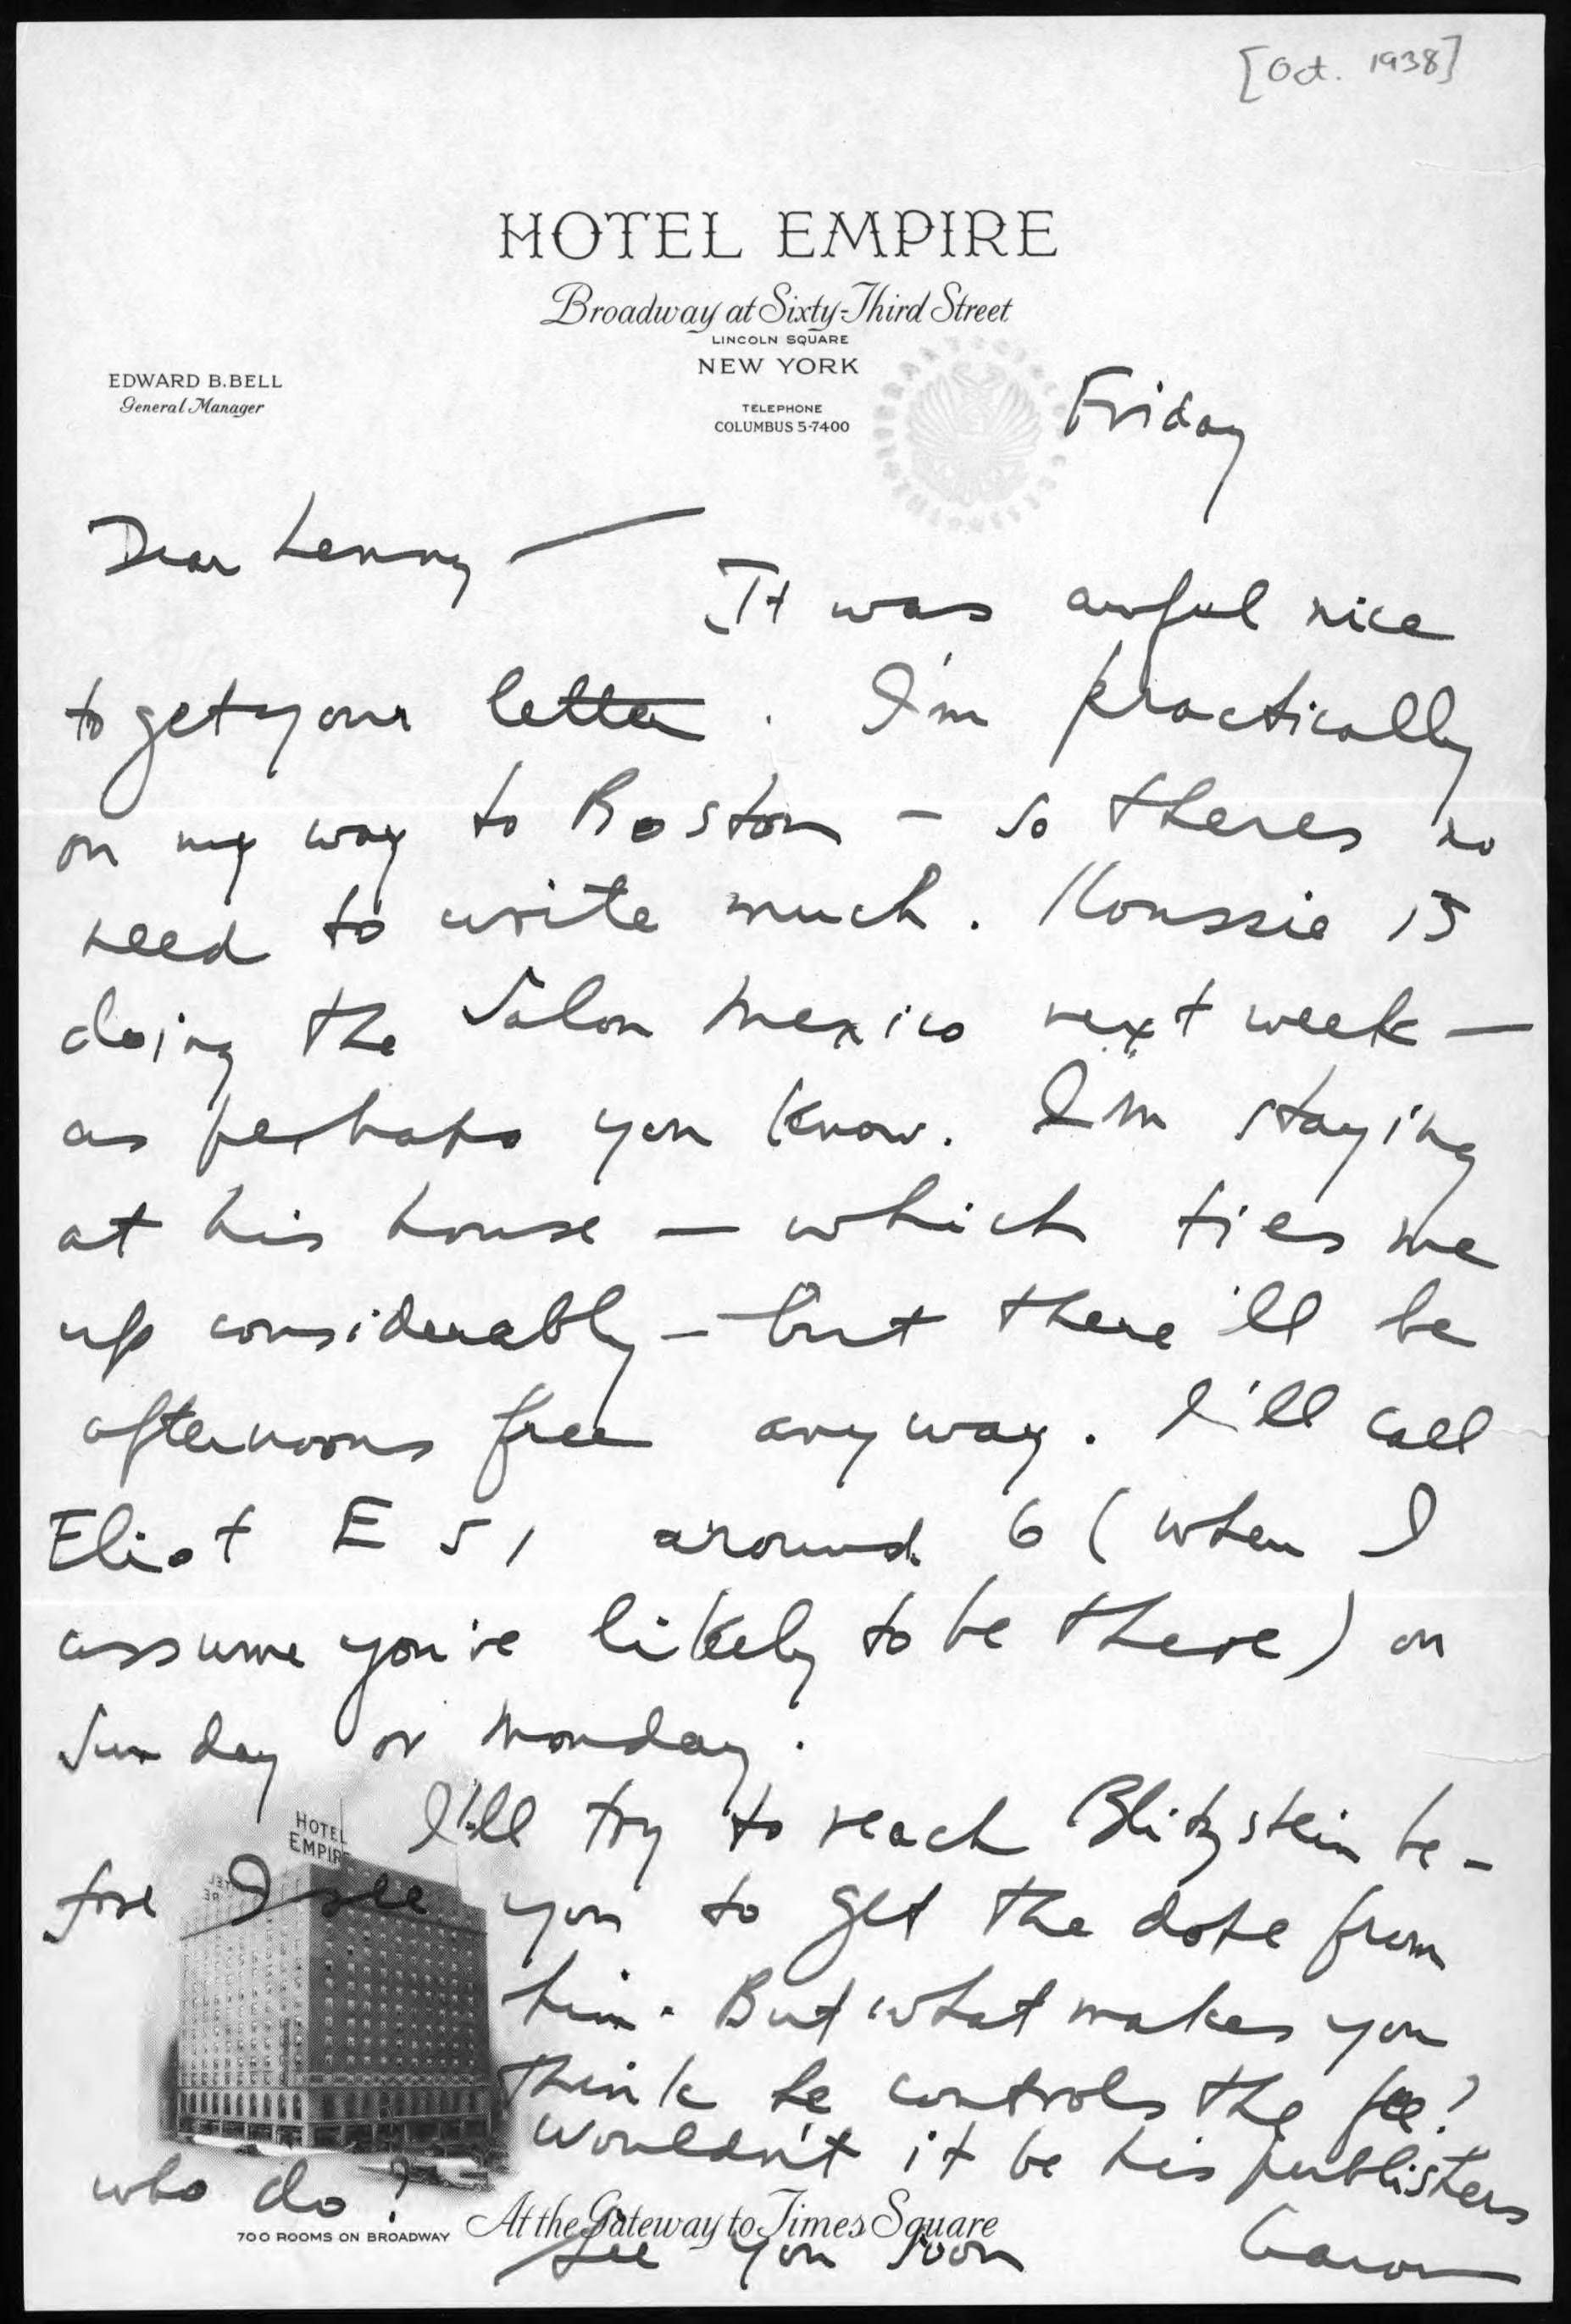 [Oct. 1938]
HOTEL EMPIRE
Broadway at Sixty-Third Street
LINCOLN SQUARE
NEW YORK
EDWARD B. BELL
General Manager
TELEPHONE
COLUMBUS 5-7400
Friday
Dear Lenny —
It was awful nice
to get your letter. I'm practically
on my way to Boston – so theres no
need to write much. Koussie is
doing the Salon Mexico next week —
as perhaps you know. I'm staying
at his house — which ties me
up considerably — but there'll be
afternoons free anyway. I'll call
Eliot E 51 around 6 (when I
assume you're likely to be there) on
Sunday or Monday.
I'll try to reach Blitzstein be-
fore I see you to get the dope from
him. But what makes you
think he controls the fee?
Wouldn't it be his publishers
who do?
HOTEL
EMPIRE
700 ROOMS ON BROADWAY
At the Gateway to Times Square
See you soon
Aaron